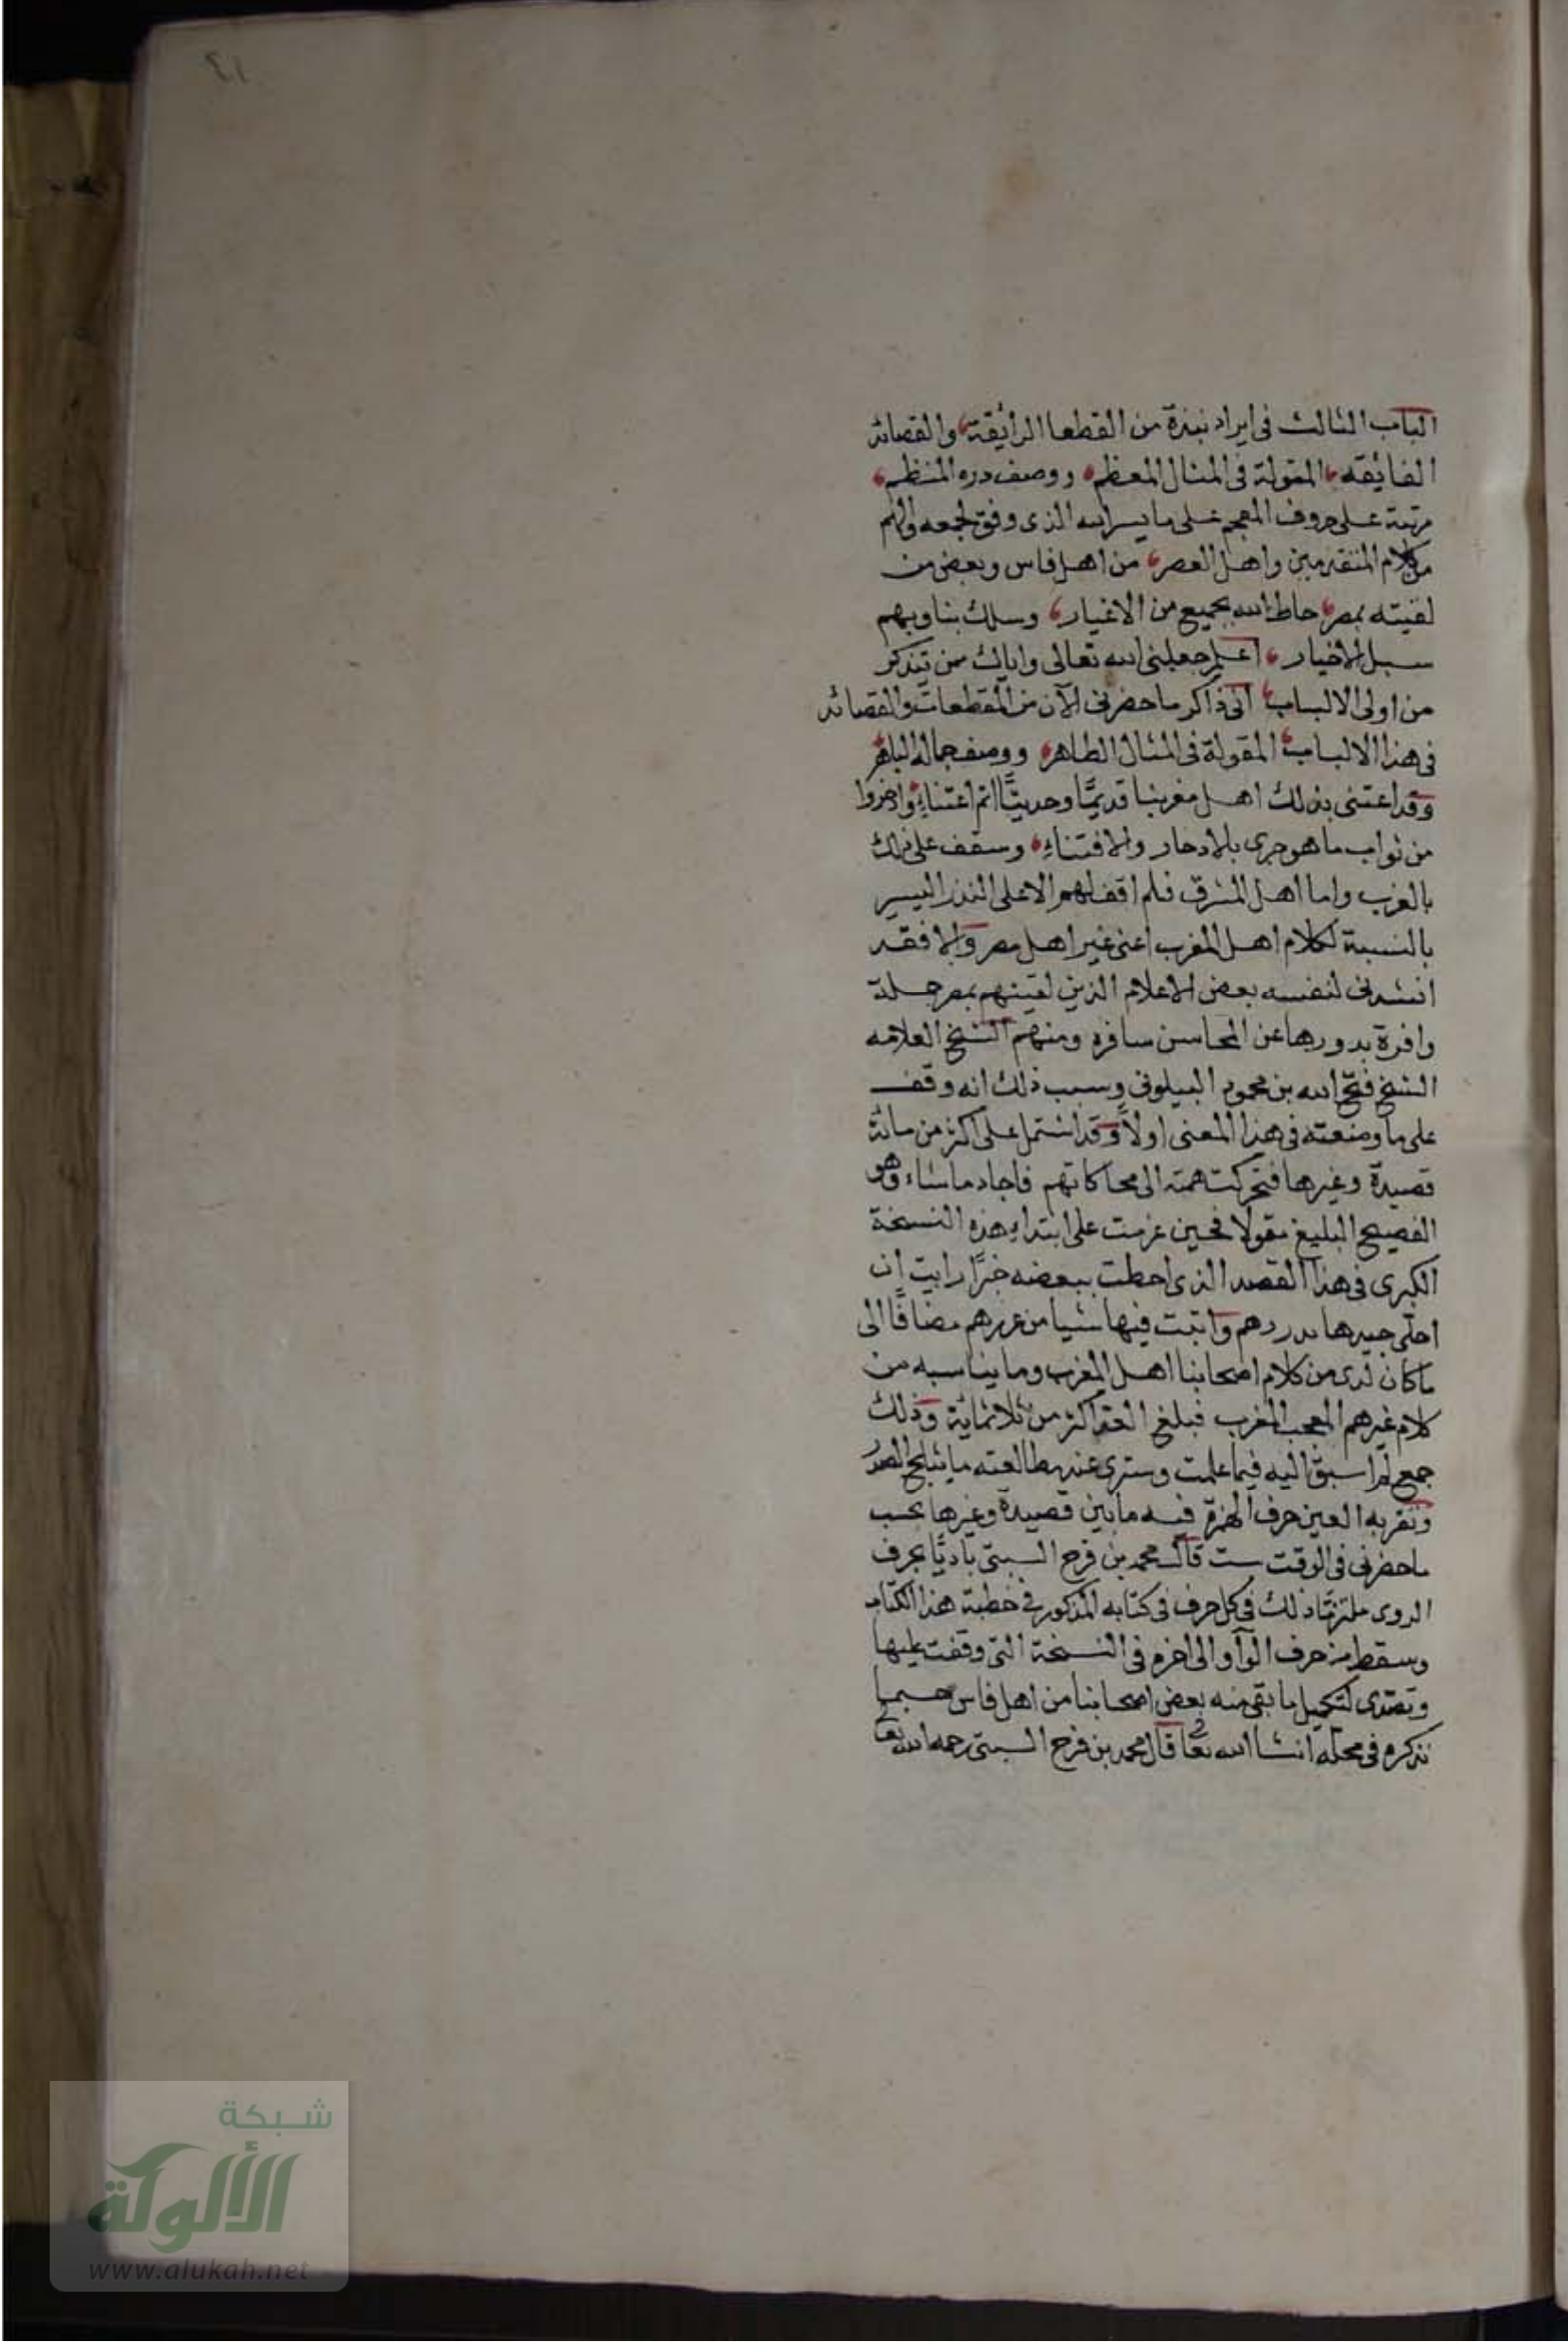 ٤١
الباب الثالث فى ايراد نبذة من القطعا الرائيقة والقصائد
الفائيقه المقولة فى المثال المعظم ووصف دره المنظم
مرتبة على حروف المعجم على ما يسر الله الذى وفق لجمعه والهم
من كلام المتقدمين واهل العصر من اهل فاس وبعض من
لقيته بمصر حاط الله بجميع من الاغيار وسلك بنا وبهم
سبل الاخيار اعلم جعلنى الله تعالى واياك ممن تذكر
من اولى الالباب انى ذاكر ما حضرنى الآن من المقطعات والقصائد
فى هذا الالباب المقولة فى المثال الطاهر ووصف جماله الباهر
وقد اعتنى بذلك اهل مغربنا قديمًا وحديثًا اتم اعتناءٍ وادخروا
من ثواب ما هو حرى بالادخار والاقتناءِ وستقف على ذلك
بالغرب واما اهل المشرق فلم اقف لهم الا على النذر اليسير
بالنسبة لكلام اهل المغرب اعنى غير اهل مصر والا فقد
انشدنى لنفسه بعض الاعلام الذين لقيتهم بمصر جملة
وافرة بدورها عن المحاسن سافره ومنهم الشيخ العلامه
الشيخ فتح الله بن محمود البيلونى وسبب ذلك انه وقف
على ما وضعته فى هذا المعنى اولاً وقد اشتمل على اكثر من مائة
قصيدة وغيرها فتحركت همته الى محاكاتهم فاجاد ما شاء وهو
الفصيح البليغ مقولا فحين عزمت على ابتداءِ هذه النسخة
الكبرى فى هذا القصد الذى احطت ببعضه خبرًا رايت ان
احلى جيدها بدررهم واثبت فيها شيا من غررهم مضافًا الى
ما كان لدى من كلام اصحابنا اهل المغرب وما يناسبه من
كلام غيرهم المعجب المغرب فبلغ العقد اكثر من ثلاثمائة وذلك
جمع لم اسبق اليه فيما علمت وسترى عند مطالعته ما يثلج الصدر
وتقر به العين حرف الهمزة فيه ما بين قصيدة وغيرها بحسب
ما حضرنى فى الوقت ست قال محمد بن فرج السبتى باديًا بحرف
الروى ملتزمًا ذلك فى كل حرف فى كتابه المذكور فى خطبة هذا الكتاب
وسقط من حرف الوآو الى اخره فى النسخة التى وقفت عليها
وتصدى لتكميل ما بقى منه بعض اصحابنا من اهل فاس حسبما
نذكره فى محله انشا الله تعا قال محمد بن فرج السبتى رحمه الله تعا
شبكة
الألوكة
www.alukah.net